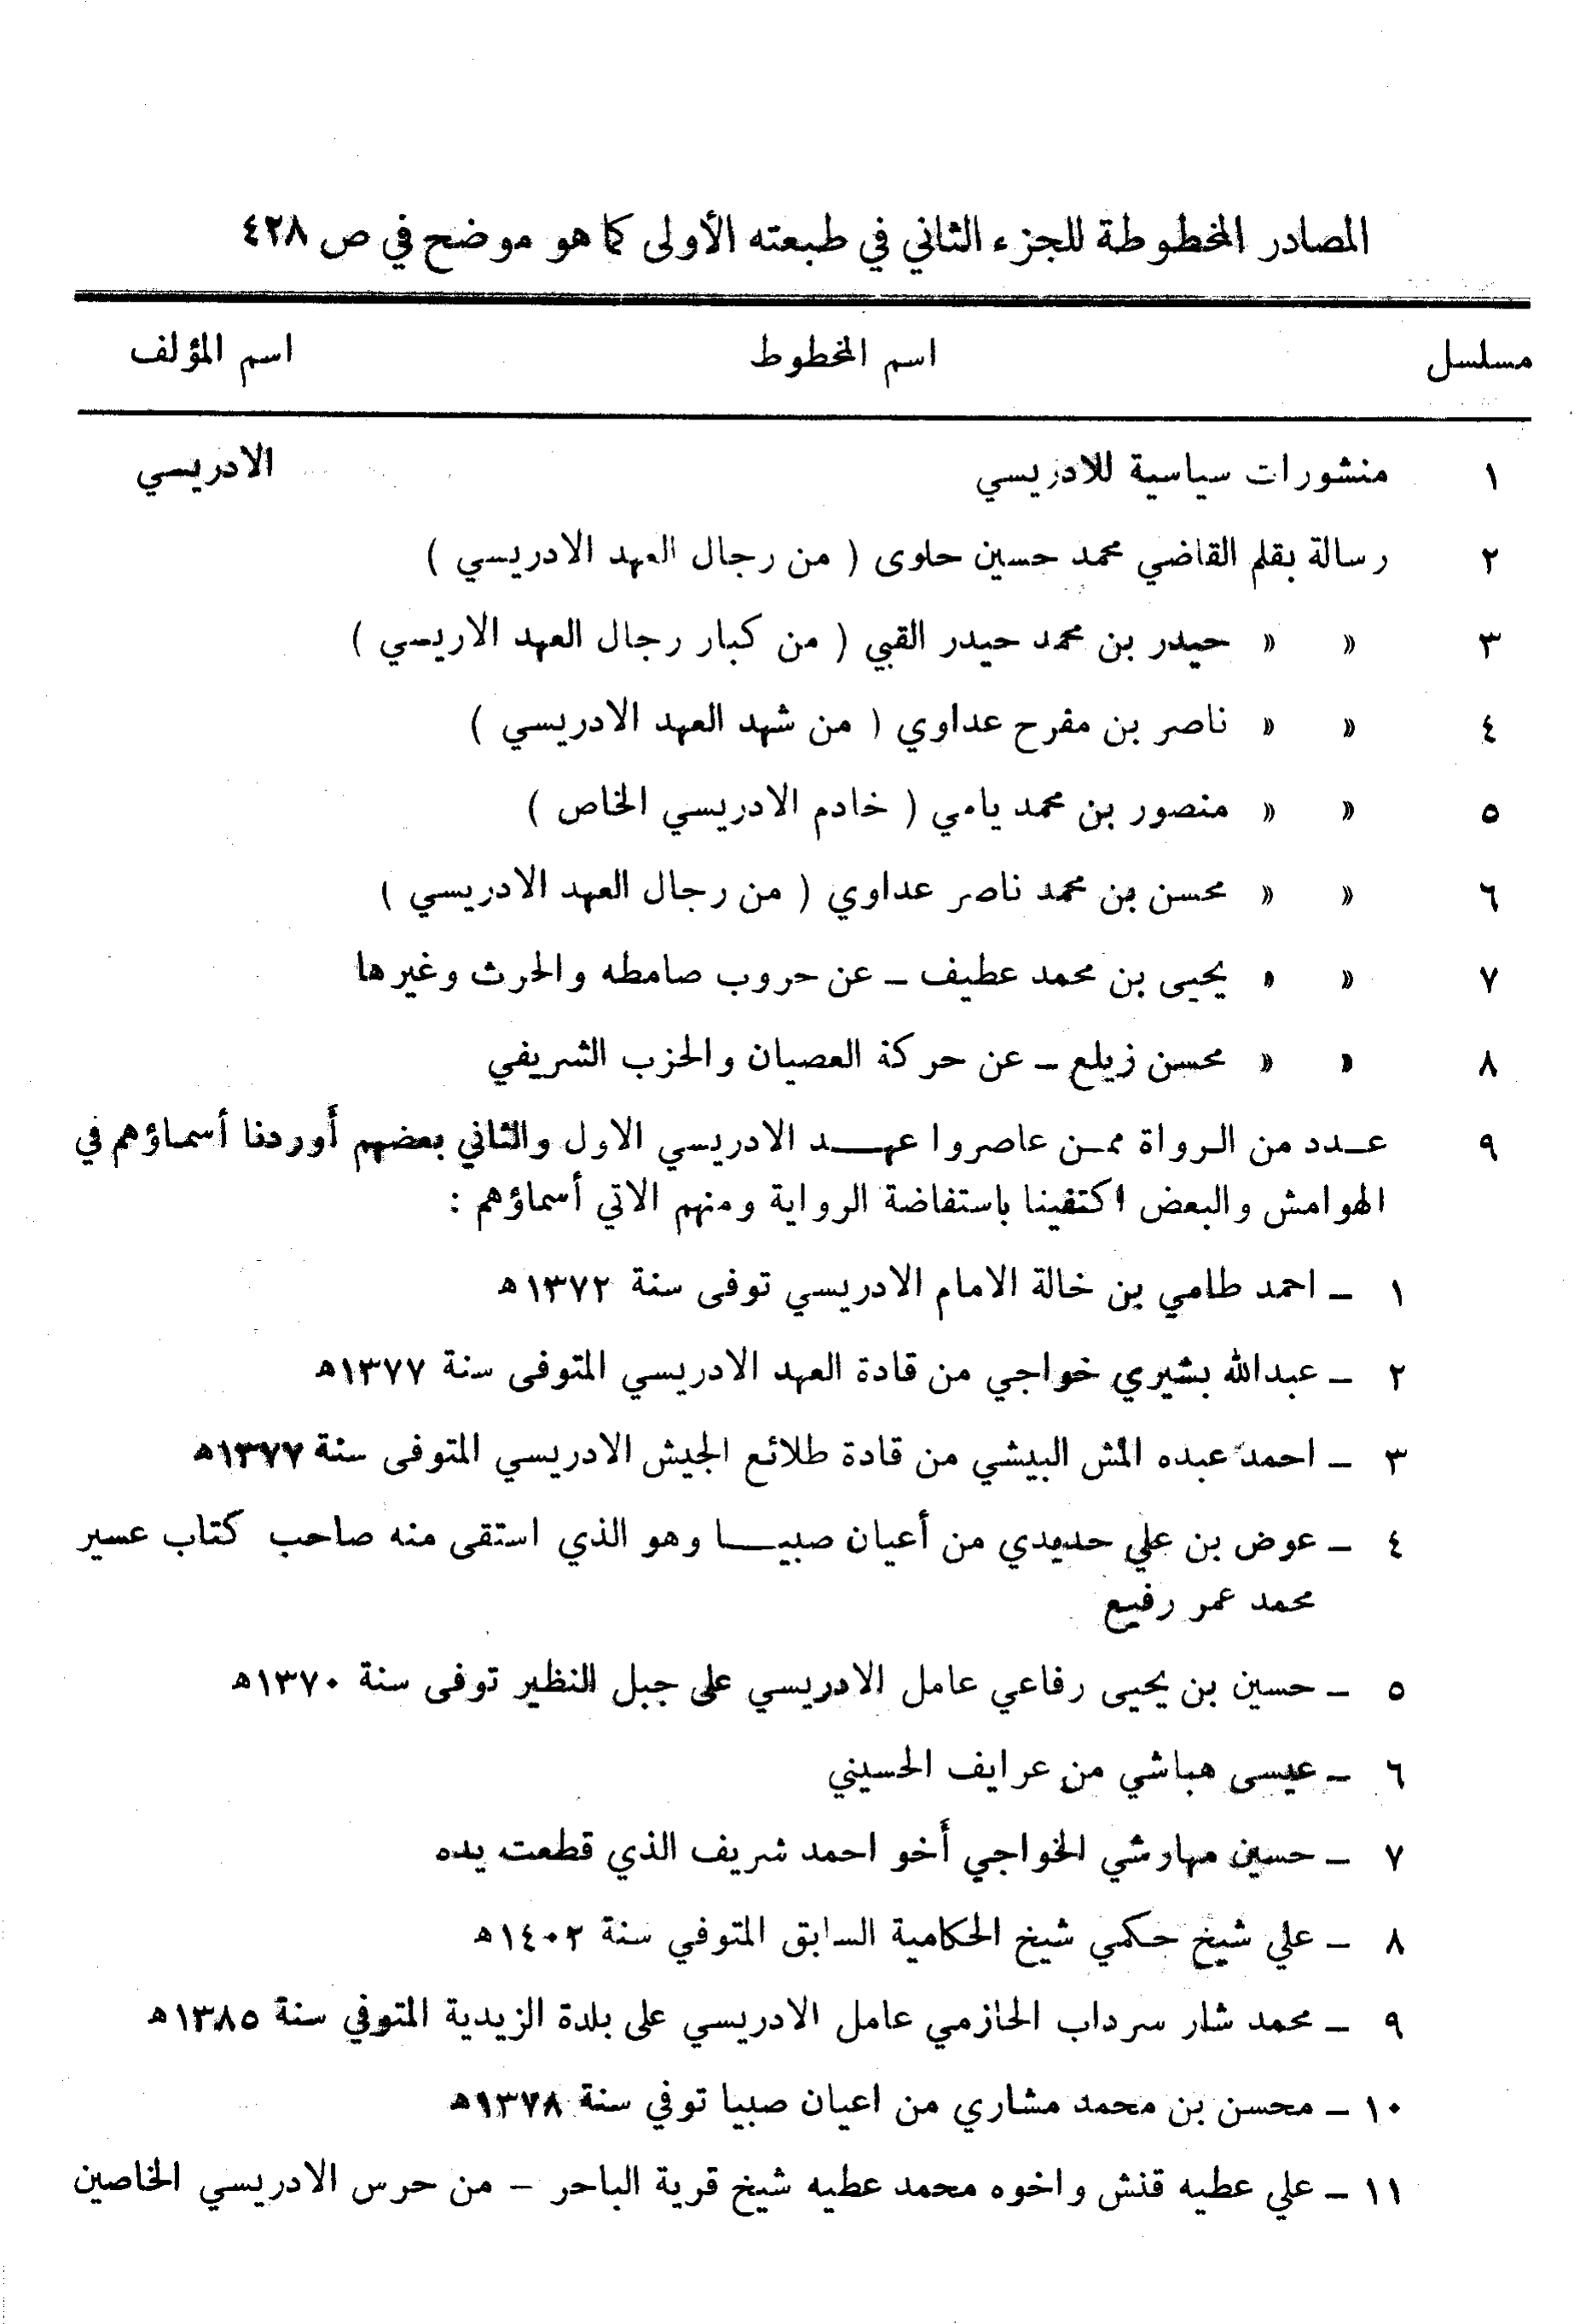 المصادر المخطوطة للجزء الثاني في طبعته الأولى كما هو موضح في ص ٤٢٨
مسلسل اسم المخطوط اسم المؤلف
١ منشورات سياسية للادريسي الادريسي
٢ رسالة بقلم القاضي محمد حسين حلوى ( من رجال العهد الادريسي )
٣ » » حيدر بن محمد حيدر القبي ( من كبار رجال العهد الاريسي )
٤ » » ناصر بن مفرح عداوي ( من شهد العهد الادريسي )
٥ » » منصور بن محمد يامي ( خادم الادريسي الخاص )
٦ » » محسن بن محمد ناصر عداوي ( من رجال العهد الادريسي )
٧ » » يحيى بن محمد عطيف – عن حروب صامطه والحرث وغيرها
٨ » » محسن زيلع – عن حركة العصيان والحزب الشريفي
٩ عـدد من الـرواة ممـن عاصروا عهـــد الادريسي الاول والثاني بعضهم أوردنا أسمـاؤهم في
الهوامش والبعض اكتفينا باستفاضة الرواية ومنهم الاتي أسماؤهم :
١ – احمد طامي بن خالة الامام الادريسي توفى سنة ١٣٧٢ﻫ
٢ – عبدالله بشيري خواجي من قادة العهد الادريسي المتوفى سنة ١٣٧٧ﻫ
٣ – احمد عبده المش البيشي من قادة طلائع الجيش الادريسي المتوفى سنة ١٣٧٧ﻫ
٤ – عوض بن علي حديدي من أعيان صبيـــا وهو الذي استقى منه صاحب كتاب عسير
محمد عمر رفيع
٥ – حسين بن يحيى رفاعي عامل الادريسي على جبل النظير توفى سنة ١٣٧٠ﻫ
٦ – عيسى هباشي من عرايف الحسيني
٧ – حسين مهارشي الخواجي أخو احمد شريف الذي قطعت يده
٨ – علي شيخ حكمي شيخ الحكامية السابق المتوفي سنة ١٤٠٢ﻫ
٩ – محمد شار سرداب الحازمي عامل الادريسي على بلدة الزيدية المتوفي سنة ١٣٨٥ﻫ
١٠ – محسن بن محمد مشاري من اعيان صبيا توفي سنة ١٣٧٨ﻫ
١١ – علي عطيه قنش واخوه محمد عطيه شيخ قرية الباحر – من حرس الادريسي الخاصين